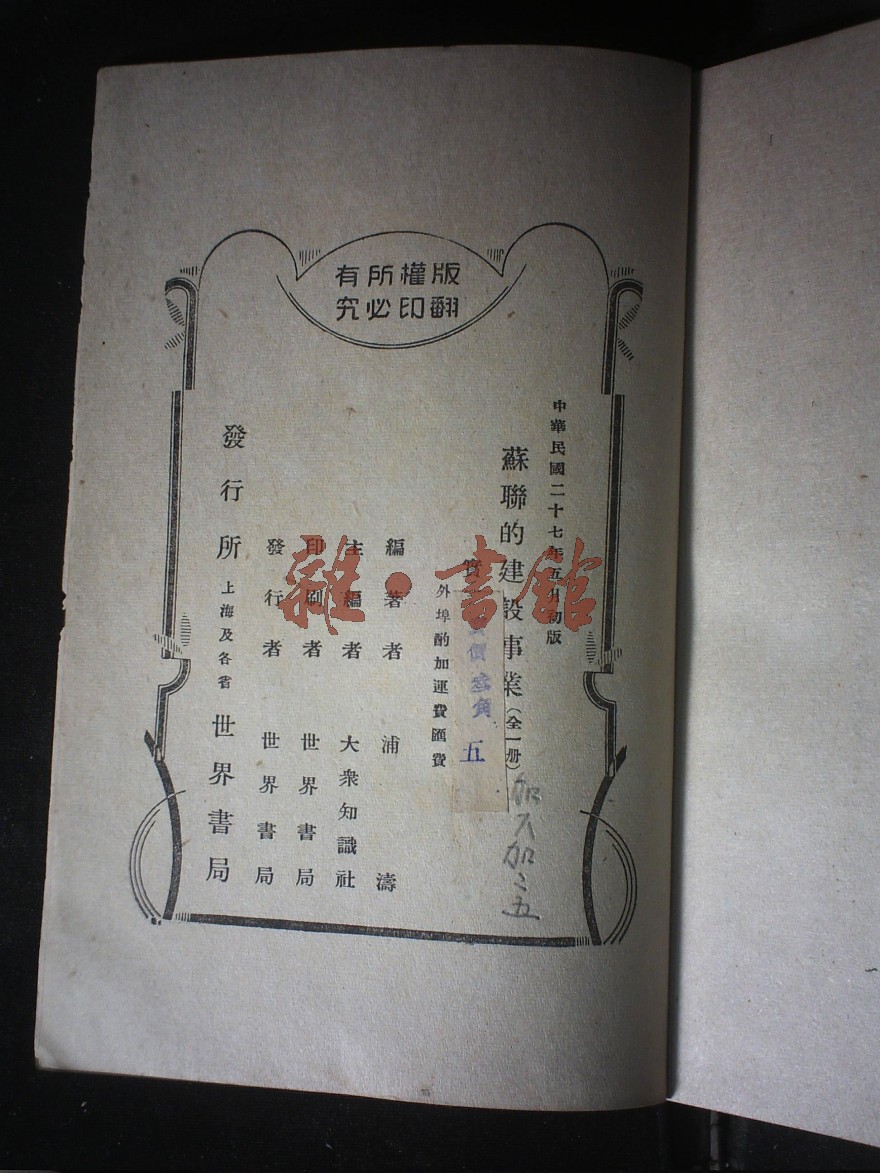 版權所有
翻印必究
中華民國二十七年五月初版
蘇聯的建設事業(全一册)
實
實價叁角 五
外埠酌加運費匯費
編著者 浦濤
主編者 大衆知識社
印刷者 世界書局
發行者 世界書局
發行所 上海及各省 世界書局
雜·書館